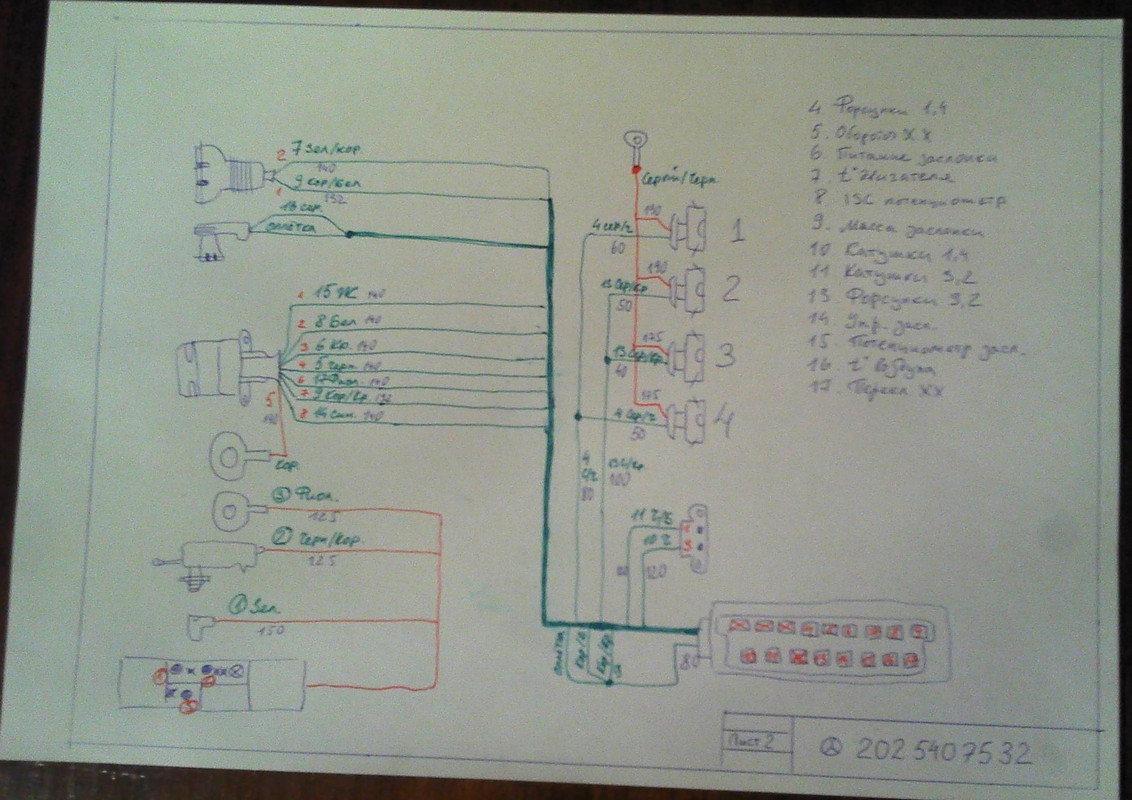 7 Зел/кор.
2
140
9 Кор/Бел
1
132
16 сер.
оплётка
1 15 Ж 140
2 8 Бел 140
3 6 Кр. 140
4 5 Черн. 140
6 17 Фиол. 140
7 9 Кор/Кр. 132
8 14 син. 140
5
140
кор.
③ Фиол.
125
② Черн/Кор.
125
① Зел.
150
Серый/Черн.
190
4 сер/ч
60
1
190
13 Сер/Кр
50
2
175
13 Сер/Кр.
40
3
175
4 Сер/ч
50
4
4
С/ч
80
13 С/кр
100
11 Ч/Б
10 Ч
1
3
120
оплётка
80
4 Форсунки 1,4
5. Обороты ХХ
6. Питание заслонки
7. t° двигателя
8. ISC потенциометр
9. Масса заслонки
10 Катушки 1,4
11 Катушки 3,2
13. Форсунки 3,2
14 Упр. засл.
15. Потенциометр засл.
16. t° воздуха
17. Перекл. ХХ
Лист 2
202 540 75 32